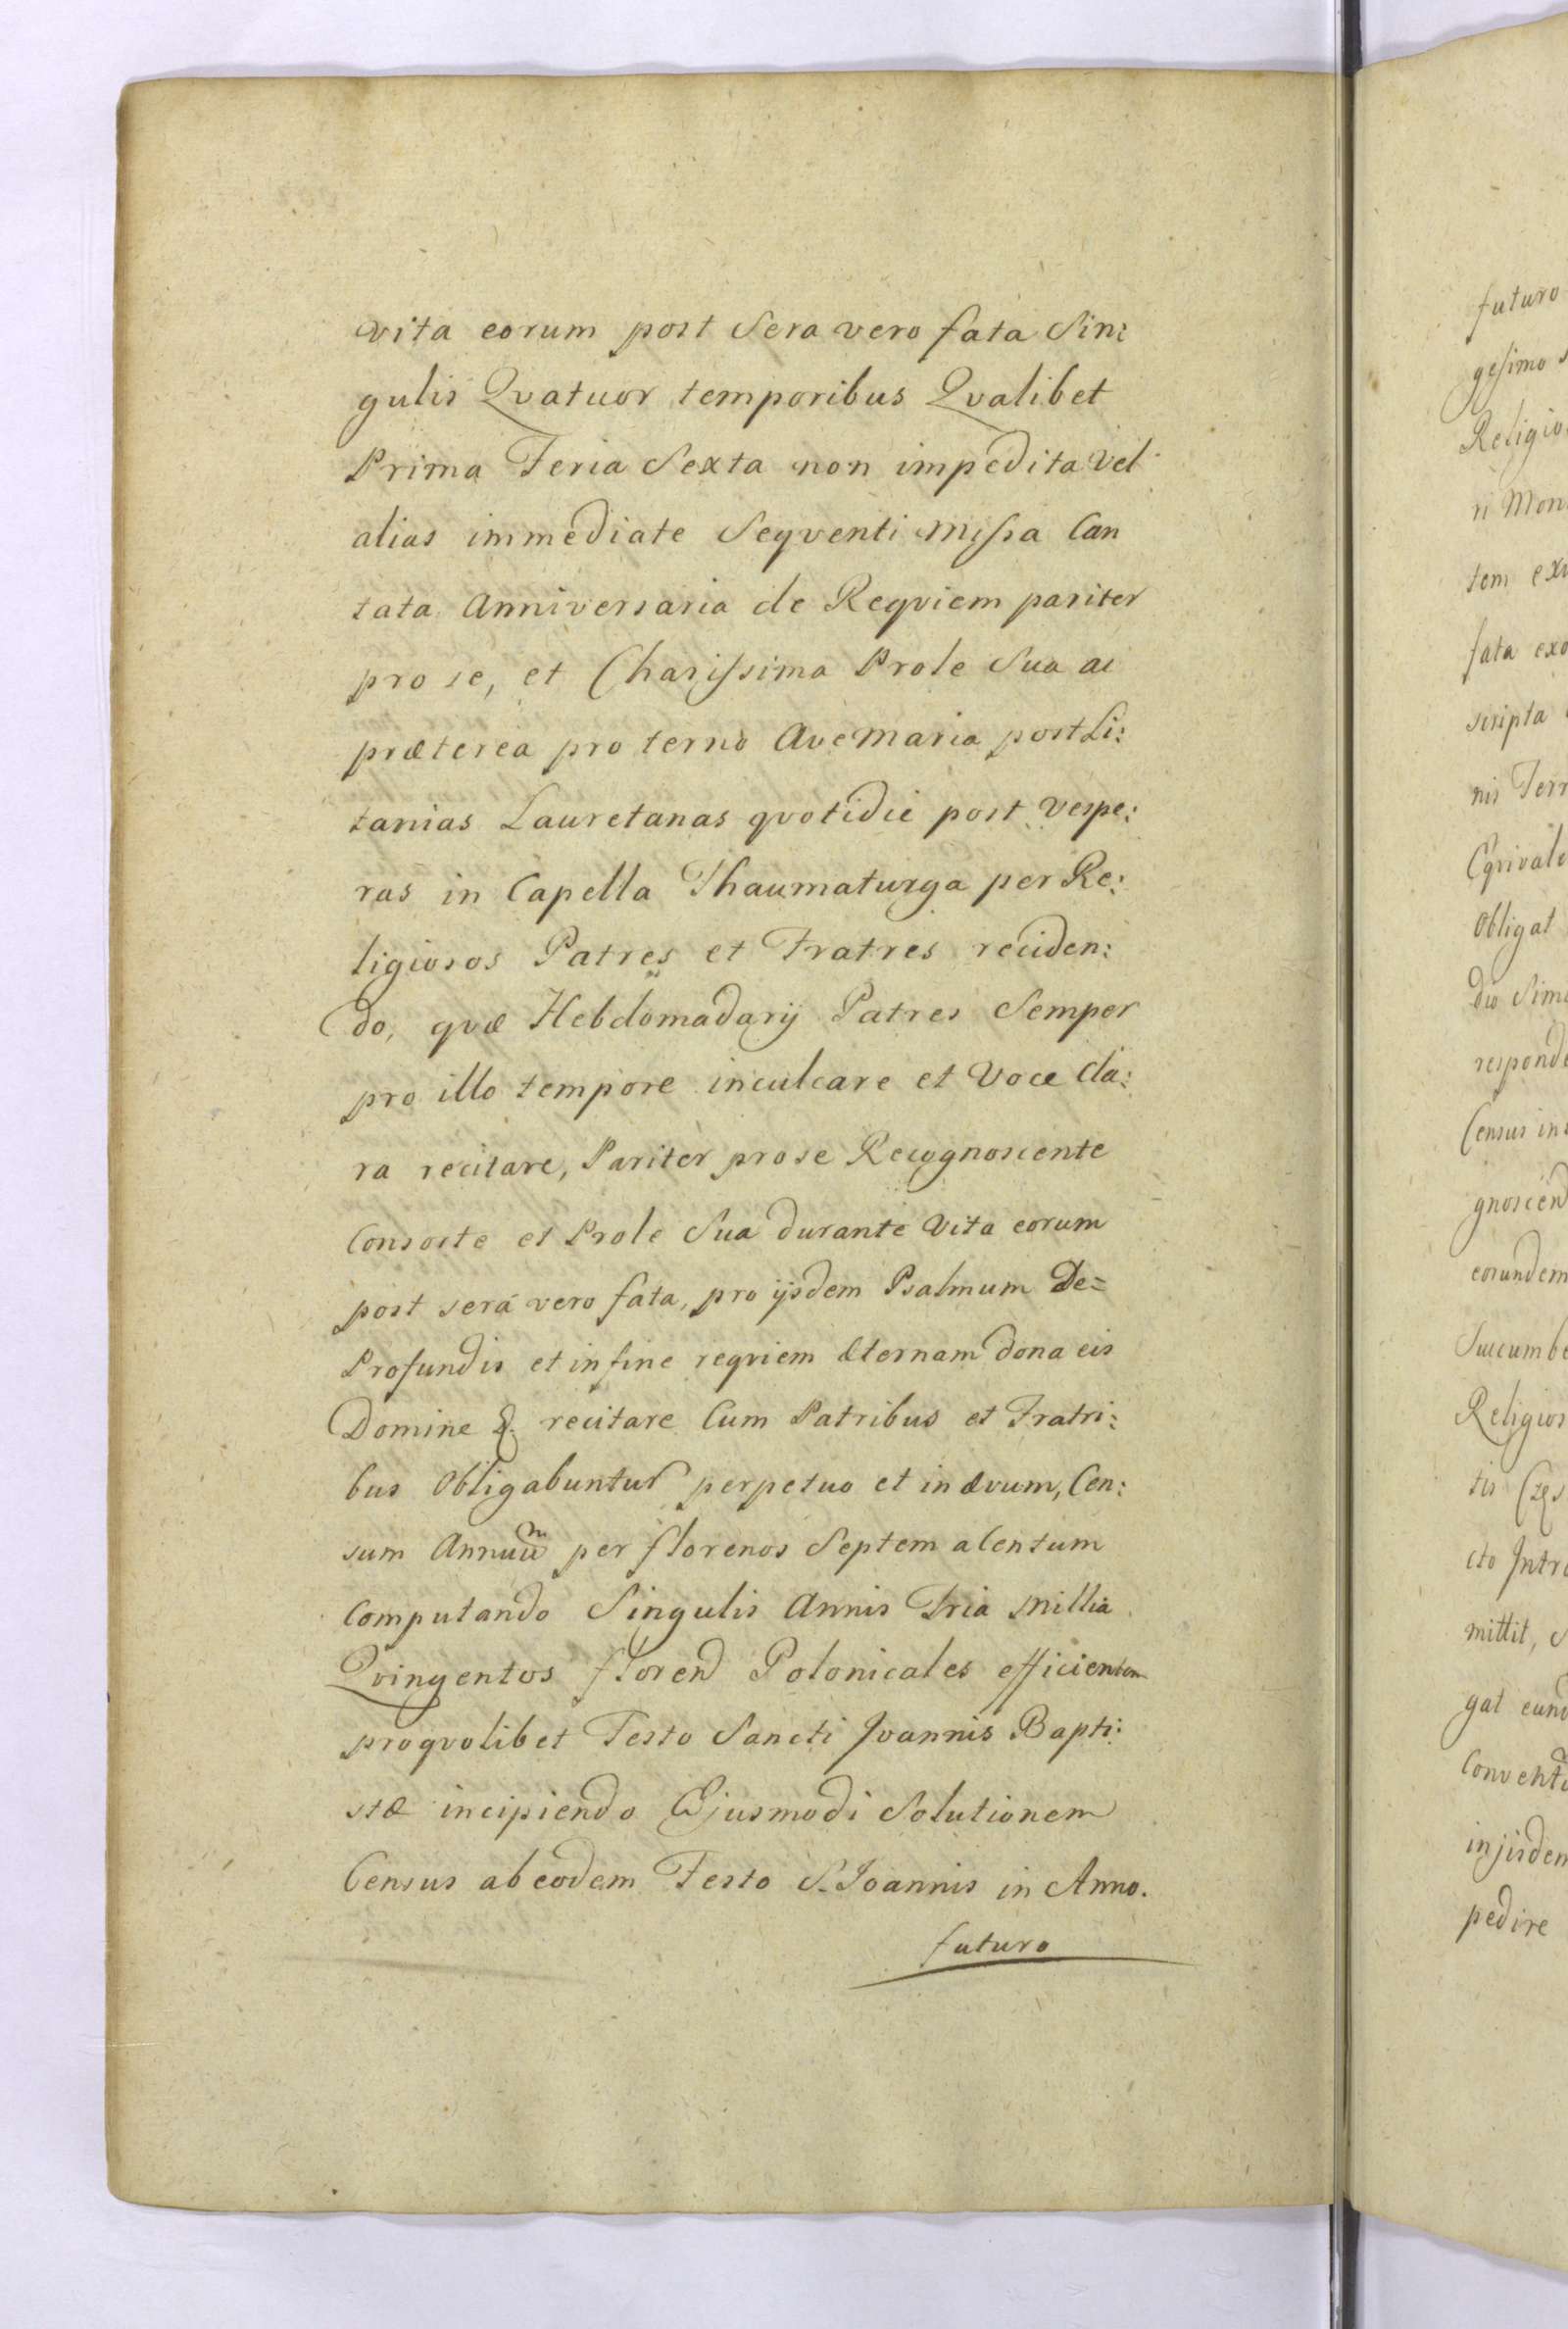 vita eorum post Sera vero fata Sin:
gulis Qvatuor temporibus Qvalibet
Prima Feria Sexta non impedita Vel
alias immediate Seqventi Missa Can
tata Anniversaria de Reqviem pariter
pro se, et Charissima Prole Sua ac
præterea pro terno Ave Maria post Li:
tanias Lauretanas qvotidie post Vespe:
ras in Capella Thaumaturga per Re:
ligiosos Patres et Fratres reciden:
do, qvæ Hebdomadarij Patres Semper
pro illo tempore inculcare et Voce Cla:
ra recitare, Pariter pro se Recognoscente
Consorte et Prole Sua durante Vita eorum
post será vero fata, pro ijsdem Psalmum De=
Profundis et in fine reqviem æternam dona eis
Domine &. recitare Cum Patribus et Fratri:
bus Obligabuntur perpetuo et in ævum, Cen:
sum Annuum per florenos Septem a Centum
Computando Singulis Annis Tria Millia
Qvingentos floren Polonicales efficientem
pro qvolibet Festo Sancti Joannis Bapti:
stæ incipiendo Ejusmodi Solutionem
Census ab eodem Festo S. Joannis in Anno.
futuro
futuro
gesimo
Religio
ri Mon
tem
fata
scripta
nis Terr
Obligat
respond
Census in
gnoscend
eorundem
Succumbe
Religios
tis
cto Intro
mittit,
gat
in jisdem
pedire